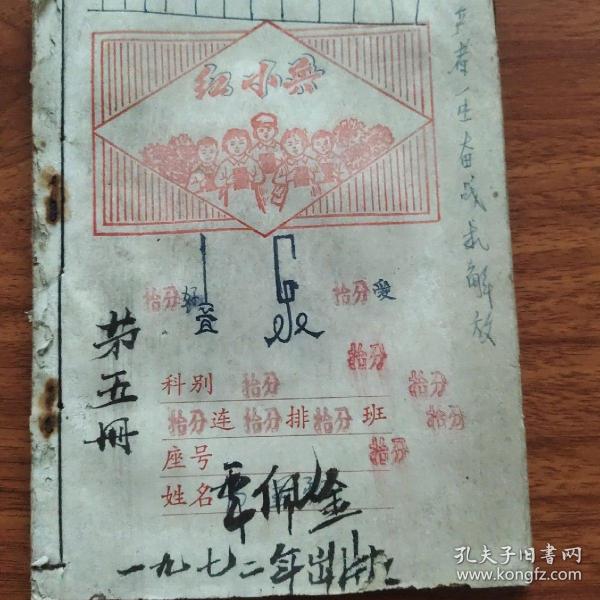 红小兵
拾分 拾分 爱
拾分
科别 拾分 拾分
拾分 连 拾分 排 拾分 班 拾分
座号 拾分
姓名 覃佩金
第五册
一九七二年出
生奋战 解放
孔夫子旧书网
www.kongfz.com